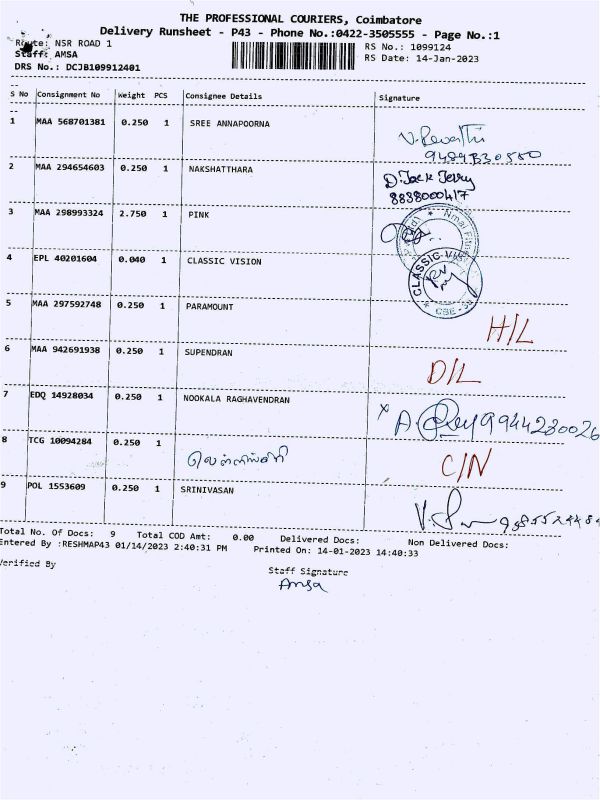 THE PROFESSIONAL COURIERS, Coimbatore
Delivery Runsheet - P43 - Phone No.:0422-3505555 - Page No.:1
Route: NSR ROAD 1 RS No.: 1099124
Staff: AMSA RS Date: 14-Jan-2023
DRS No.: DCJB109912401
S No Consignment No Weight PCS Consignee Details Signature
1 MAA 568701381 0.250 1 SREE ANNAPOORNA
2 MAA 294654603 0.250 1 NAKSHATTHARA D. Jack Jerry
8838000417
3 MAA 298993324 2.750 1 PINK
4 EPL 40201604 0.040 1 CLASSIC VISION CLASSIC
5 MAA 297592748 0.250 1 PARAMOUNT H/L
6 MAA 942691938 0.250 1 SUPENDRAN D/L
7 EDQ 14928034 0.250 1 NOOKALA RAGHAVENDRAN 9944230026
8 TCG 10094284 0.250 1 C/N
9 POL 1553609 0.250 1 SRINIVASAN
Total No. Of Docs: 9 Total COD Amt: 0.00 Delivered Docs: Non Delivered Docs:
Entered By :RESHMAP43 01/14/2023 2:40:31 PM Printed On: 14-01-2023 14:40:33
Verified By Staff Signature
Amsa